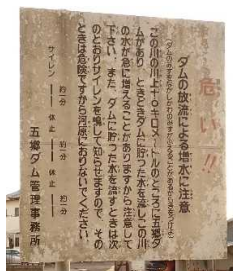 危い!!
ダムの放流による増水に注意
この川の川上十キロメートルのところに五郷ダ
ムがあり、ときどきダムに貯った水を流しこの川
の水が急に増えることがありますから注意して
下さい。また、ダムに貯った水を流すときは次
のとおりサイレンを鳴して知らせますので、その
ときは危険ですから河原におりないでください
サイレン 約一分 休止 約一分 休止 約一分
五郷ダム管理事務所